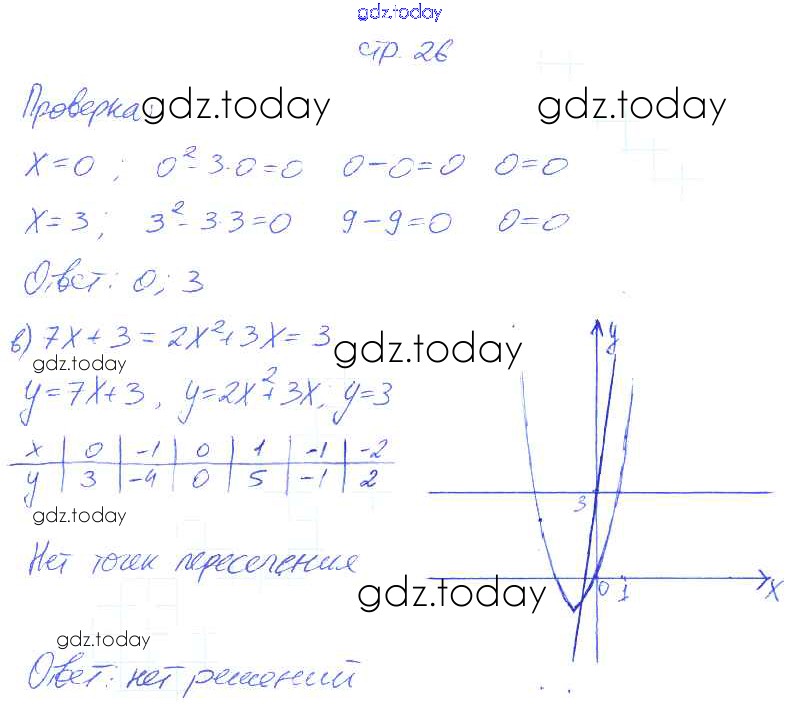 gdz.today
стр. 26
Проверка: gdz.today gdz.today
x=0; 0²-3·0=0 0-0=0 0=0
x=3; 3²-3·3=0 9-9=0 0=0
Ответ: 0; 3
в) 7x+3=2x²+3x=3 gdz.today
gdz.today
y=7x+3, y=2x²+3x, y=3
x | 0 | -1 | 0 | 1 | -1 | -2
y | 3 | -4 | 0 | 5 | -1 | 2
gdz.today
Нет точек пересечения
gdz.today
gdz.today
Ответ: нет решений
y
3
0 1 x